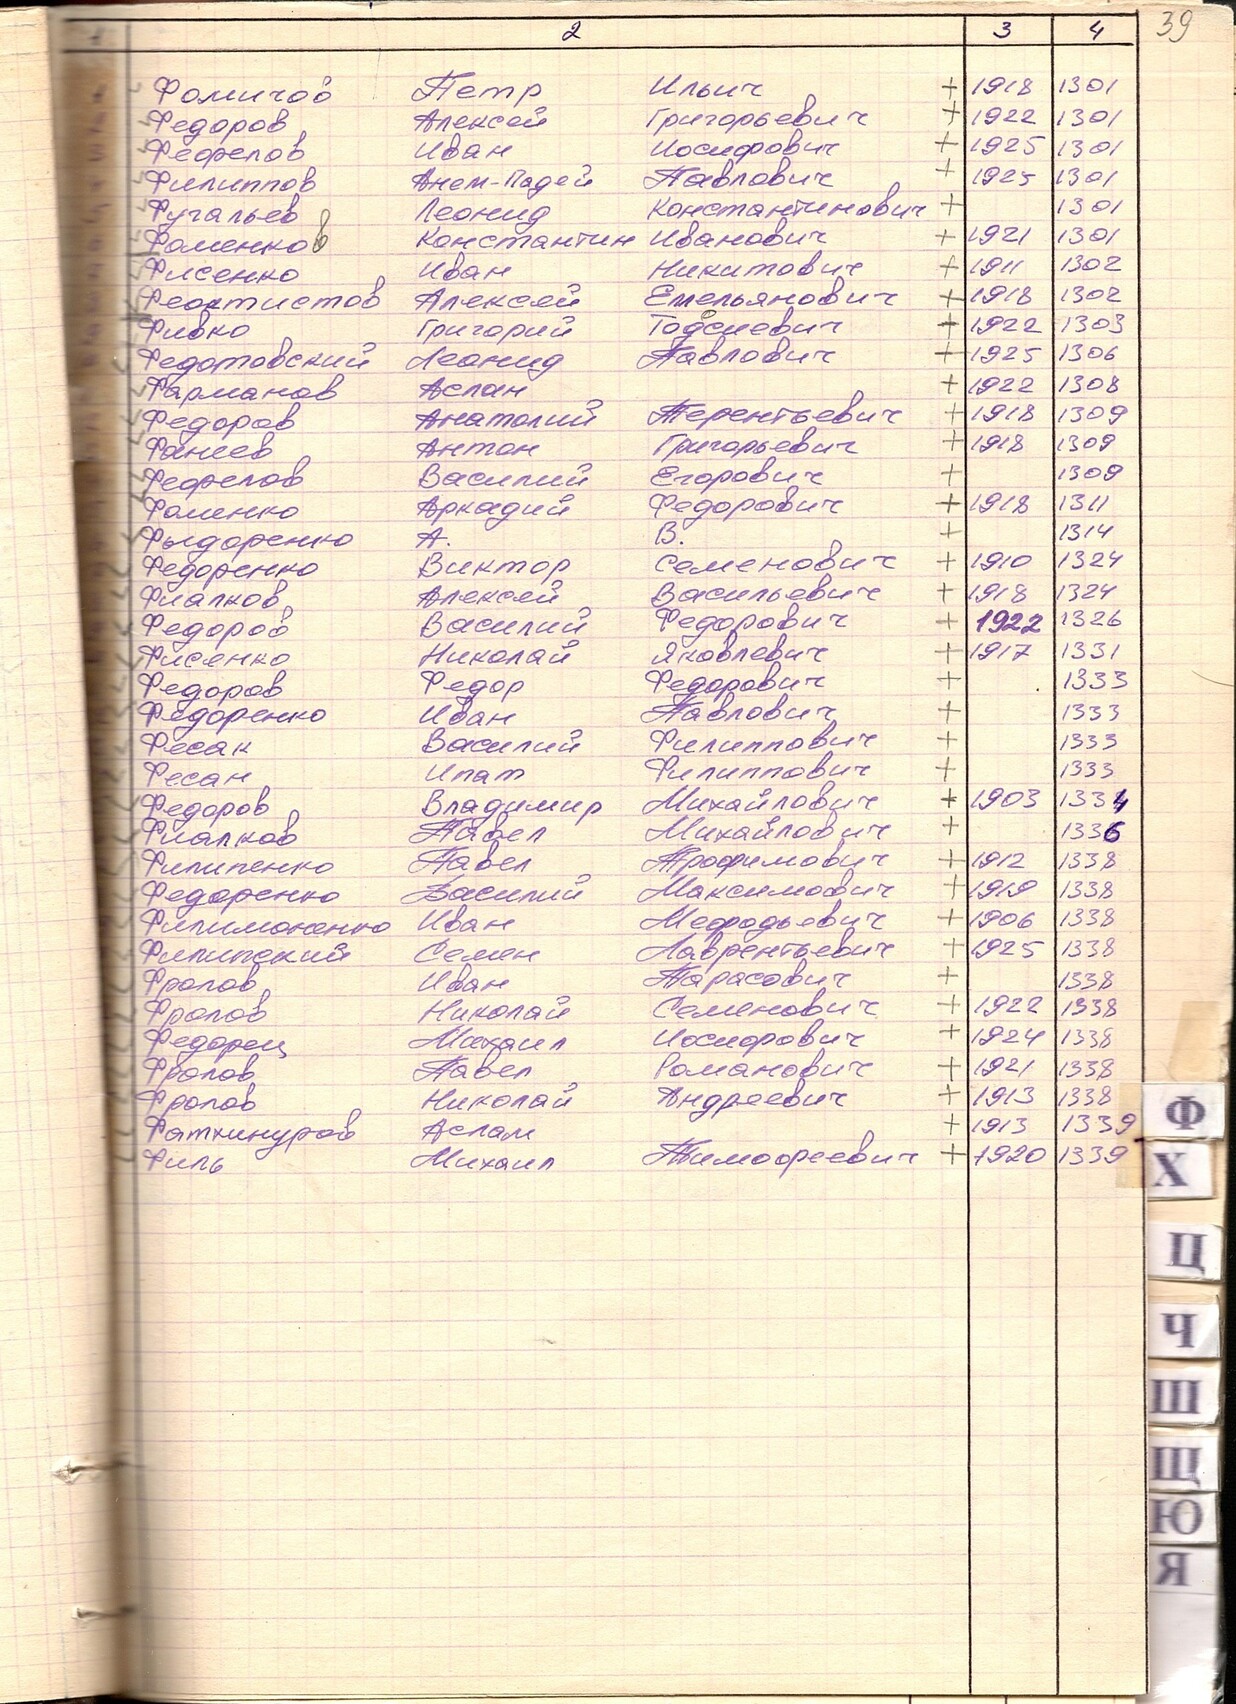 2 3 4 39
Фомичов Петр Ильич + 1918 1301
Федоров Алексей Григорьевич + 1922 1301
Фефелов Иван Иосифович + 1925 1301
Филиппов Павлович + 1925 1301
Фугальев Леонид Константинович + 1301
Фоменков Константин Иванович + 1921 1301
Фисенко Иван Никитович + 1911 1302
Феоктистов Алексей Емельянович + 1918 1302
Фивко Григорий + 1922 1303
Федотовский Леонид Павлович + 1925 1306
Фарманов Аслан + 1922 1308
Федоров Анатолий Терентьевич + 1918 1309
Фанеев Антон Григорьевич + 1918 1309
Фефелов Василий Егорович + 1309
Фоменко Аркадий Федорович + 1918 1311
Фыдоренко А. В. + 1314
Федоренко Виктор Семенович + 1910 1324
Фиалков Алексей Васильевич + 1918 1324
Федоров Василий Федорович + 1922 1326
Фисенко Николай Яковлевич + 1917 1331
Федоров Федор Федорович + 1333
Федоренко Иван Павлович + 1333
Фесак Василий Филиппович + 1333
Фесан Ипат Филиппович + 1333
Федоров Владимир Михайлович + 1903 1334
Фиалков Павел Михайлович + 1336
Филипенко Павел Трофимович + 1912 1338
Федоренко Василий Максимович + 1919 1338
Филимоненко Иван Мефодьевич + 1906 1338
Филипский Семен Лаврентьевич + 1925 1338
Фролов Иван Тарасович + 1338
Фролов Николай Семенович + 1922 1338
Федорец Михаил Иосифович + 1924 1338
Фролов Павел Романович + 1921 1338
Фролов Николай Андреевич + 1913 1338
Фатхинуров Аслам + 1913 1339
Филь Михаил Тимофеевич + 1920 1339
Ф
Х
Ц
Ч
Ш
Щ
Ю
Я